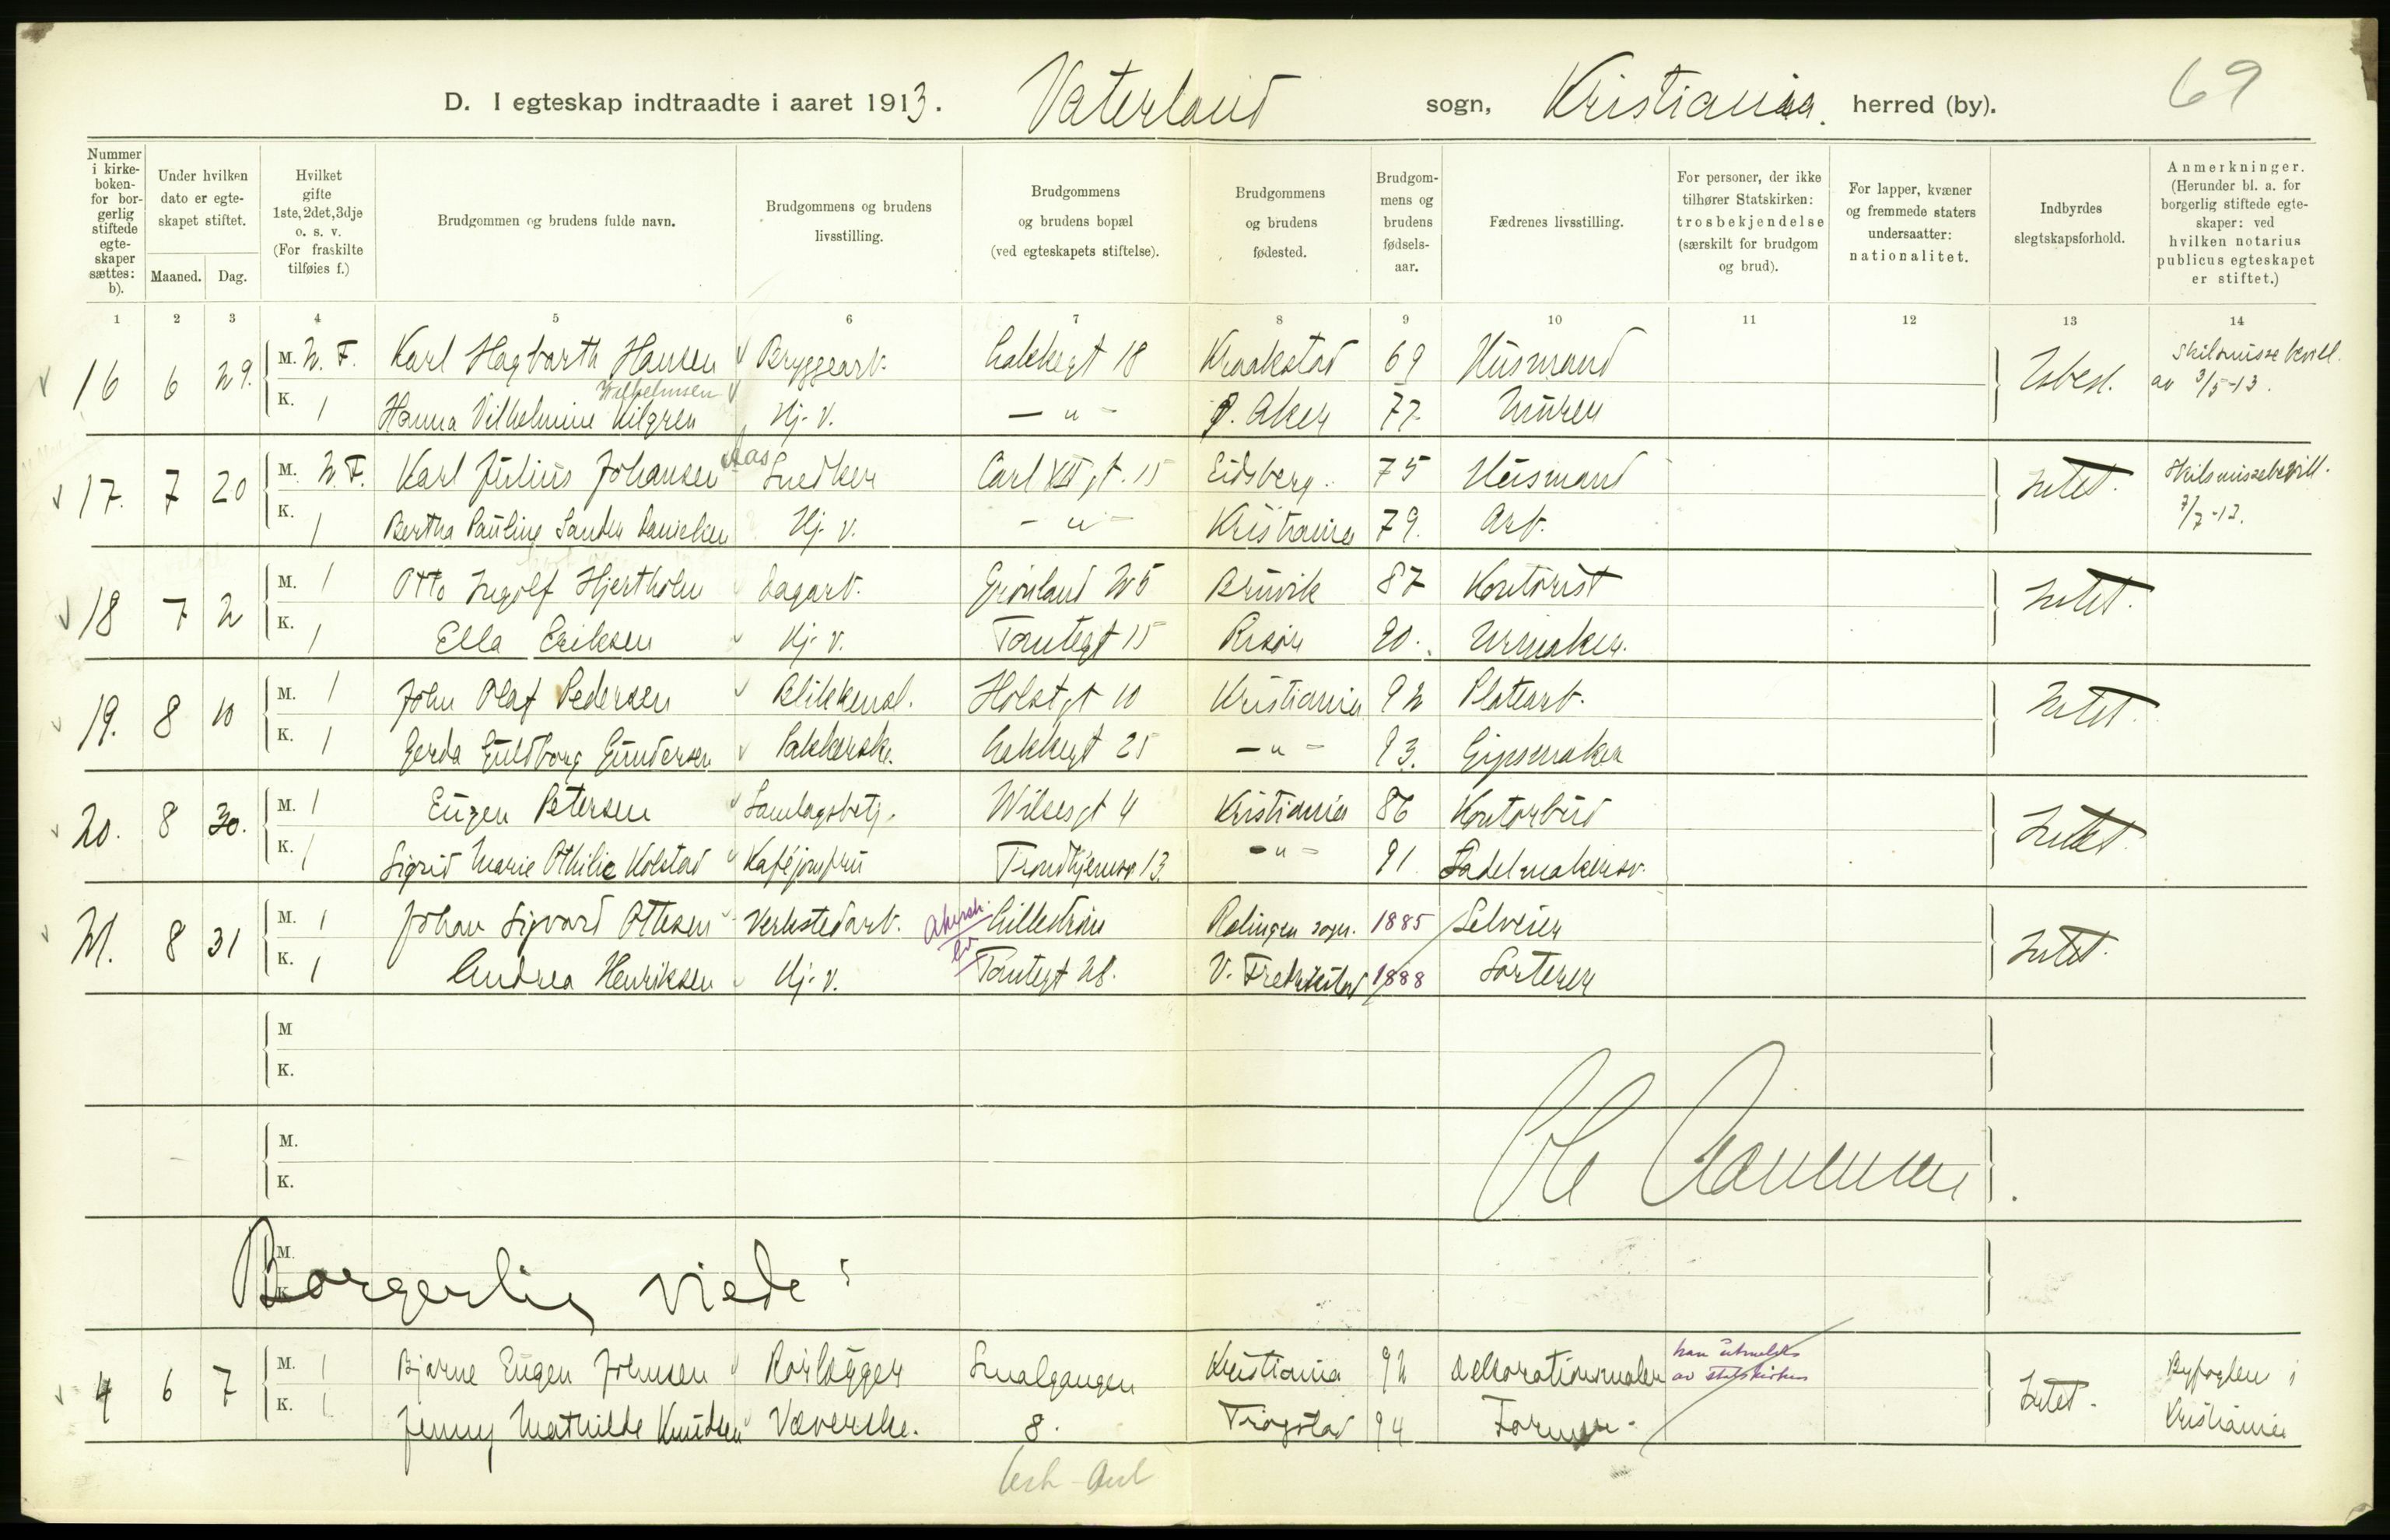 D. I egteskap indtraadte i aaret 1913. Vaterland sogn, Kristiania. herred (by). 69
Nummer i kirke-boken- for bor-gerlig stiftede egte-skaper sættes: b).
Under hvilken dato er egte-skapet stiftet.
Maaned. Dag.
Hvilket gifte 1ste, 2det, 3dje o. s. v. (For fraskilte tilføies f.)
Brudgommen og brudens fulde navn.
Brudgommens og brudens livsstilling.
Brudgommens og brudens bopæl (ved egteskapets stiftelse).
Brudgommens og brudens fødested.
Brudgom-mens og brudens fødsels-aar.
Fædrenes livsstilling.
For personer, der ikke tilhører Statskirken: trosbekjendelse (særskilt for brudgom og brud).
For lapper, kvæner og fremmede staters undersaatter: nationalitet.
Indbyrdes slegtskapsforhold.
Anmerkninger. (Herunder bl. a. for borgerlig stiftede egte-skaper: ved hvilken notarius publicus egteskapet er stiftet.)
1 2 3 4 5 6 7 8 9 10 11 12 13 14
16 6 29. M. 2. F. Karl Hagbarth Hansen Bryggearb. Lakkegt 18 Kraakstad 69 Husmand Ubesl. Skilsmissebevill. av 3/5-13.
Wilhelmsen
K. 1 Hanna Vilhelmine Kilgren Hj. V. — " — Ø. Aker 77 Murer
17. 7 20 M. 2. F. Karl Julius Johansen Aas Snedker Carl XII gt. 15 Eidsberg. 75 Husmand Intet. Skilsmissebevill. 7/7-13.
K. 1 Bertha Pauline Sander Danielsen Hj. v. — " — Kristiania 79. Arb.
18 7 2 M. 1 Otto Ingolf Hjertholm Lagarb. Grønland 25 Bruvik 87 Kontorist Intet.
K. 1 Ella Eriksen Hj. v. Tomtegt 15 Risør 90. Urmaker.
19. 8 10 M. 1 John Olaf Pedersen Blikkensl. Holstgt 10 Kristiania 92 Platearb. Intet.
K. 1 Gerda Guldborg Gundersen Pakkerske. Lakkegt 25 — " — 93. Gipsmaker
20. 8 30. M. 1 Eugen Petersen Samlagsbetj. Wilsesgt 4 Kristiania 86 Kontorbud Intet
K. 1 Sigrid Marie Othilie Kolstad Kaféjomfru Trondhjemsv 13. — " — 91 Sadelmakersv.
21. 8 31 M. 1 Johan Sigvard Ottesen Verkstedarb. Akersh. Lillestrøm Rælingen sogn. 1885 Selveier Intet.
K. 1 Andrea Henriksen Hj. v. Tomtegt 28. V. Fredrikstad 1888 Sorterer
M
K.
M.
K.
M.
K.
Borgerlig viede:
4 6 7 M. 1 Bjarne Eugen Johnsen Rørlægger Smalgangen Kristiania 92 Dekorationsmaler han utmeldt av statskirken Intet. Byfogden i Kristiania
K. 1 Jenny Mathilde Knudsen Væverske. 8. Trøgstad 94 Former.